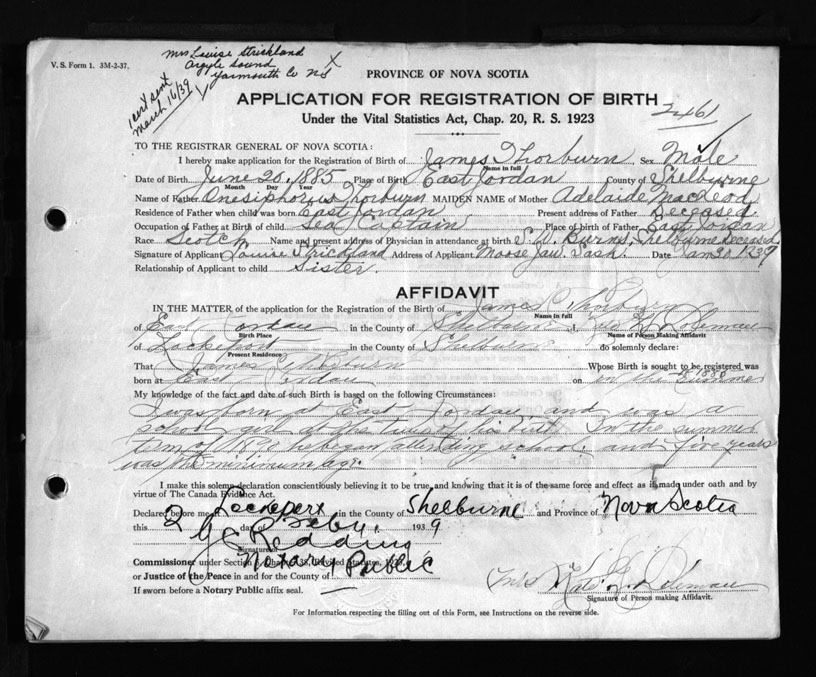 V. S. Form 1. 3M-2-37.
Mrs Louise Strickland
Argyle Sound
Yarmouth Co NS X
1 cert sent
March 16/39
PROVINCE OF NOVA SCOTIA
APPLICATION FOR REGISTRATION OF BIRTH
2461
Under the Vital Statistics Act, Chap. 20, R. S. 1923
TO THE REGISTRAR GENERAL OF NOVA SCOTIA:
I hereby make application for the Registration of Birth of James Thorburn, Sex Male
Name in full
Date of Birth June 20. 1885 Place of Birth East Jordan County of Shelburne
Month Day Year
Name of Father Onesiphorous Thorburn MAIDEN NAME OF Mother Adelaide MacLeod
Residence of Father when child was born East Jordan Present address of Father Deceased
Occupation of Father at Birth of child Sea Captain Place of birth of Father East Jordan
Race Scotch Name and present address of Physician in attendance at birth Burns, Shelburne Deceased
Signature of Applicant Louise Strickland Address of Applicant Moose Jaw. Sask. Date Jan 30 1939
Relationship of Applicant to child Sister
AFFIDAVIT
IN THE MATTER of the application for the Registration of the Birth of James C. Thorburn
Name in full
of East Jordan in the County of Shelburne I,
Birth Place Name of Person Making Affidavit
of Lockeport in the County of Shelburne do solemnly declare:
Present Residence
That James C. Thorburn Whose Birth is sought to be registered was
born at East Jordan on in the Summer of 1885
My knowledge of the fact and date of such Birth is based on the following Circumstances:
I was born at East Jordan, and was a
school girl at the time of his birth. In the summer
term of 1890 he began attending school, and five years
was the minimum age.
I make this solemn declaration conscientiously believing it to be true, and knowing that it is of the same force and effect as if made under oath and by
virtue of The Canada Evidence Act.
Declared before me Lockeport in the County of Shelburne and Province of Nova Scotia
this 2 day of Feby. 1939
Redding
Signature of
Notary Public
Commissioner under Section Chapter 38, Revised Statutes, 1923,
or Justice of the Peace in and for the County of
If sworn before a Notary Public affix seal.
Mrs
Signature of Person making Affidavit.
For Information respecting the filling out of this Form, see Instructions on the reverse side.